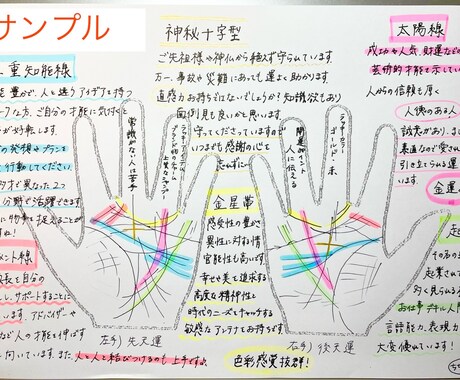 サンプル
二重知能線
豊かで、人と違うアイデアを持つ
ークな方、ご自分の才能に気付くと
が好転します。
の発想やプランを
行動してください
才や異なった2つ
分野で活躍できます
に物事を捉えることが
すね！
メント線
成長を自分の
し、サポートすることに
います。アドバイザーや
など人の才能を伸ばす
向いています。また人と人と結びつけるのも上手ですよ。
神秘十字型
ご先祖様や神仏から絶えず守られています。
万一、事故や災難にあっても運よく助かります。
直感力お持ちではないでしょうか？知識欲もあり
面倒見も良いかと思います。
守ってくださっていますので
いつまでも感謝の心を
忘れずに
常識がない人は苦手
開運ポイント
人に伝える
ラッキーカラー
ゴールド・赤
金星帯
感受性の豊かさ
異性に対する情
官能性も高いです。
幸せや美を追求する
高度な精神性と
時代のニーズをキャッチする
敏感なアンテナをお持ちです
左手）先天運
右手）後天運
色彩感覚抜群！
太陽線
成功や人気、財運などの
芸術的才能を示してい
人からの信頼も厚く
人徳のある人
誠実があり、
素直なので愛され
引き立てられる運
います。
金運
起
その名の
起業されて
多く見られる
お仕事デキル人間
言語能力、表現力
大変優れています！